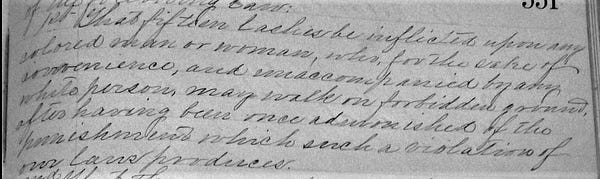 331
of the following Law:
1st That fifteen Lashes be inflicted upon any
colored man or woman, who, for the sake of
convenience, and unaccompanied by any
white person, may walk on forbidden ground,
after having been once admonished of the
punishment which such a violation of
our laws produces.